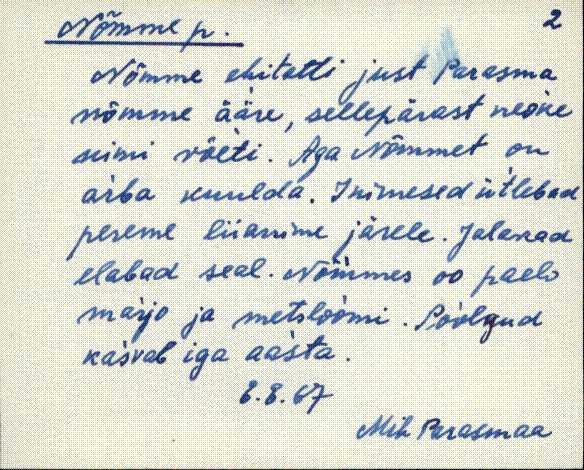 Nõmme p.
2
Nõmme ehitatti just Parasma
nõmme ääre, sellepärast neoike
nimi võeti. Aga Nõmmet on
arba kuulda. Inimesed ütlebad
pereme liianime järele. Jalakad
elabad seal. Nõmmes oo paelo
marjo ja metsloomi. Poolgud
kasvab iga aasta.
8.8.67
Mih Parasmaa